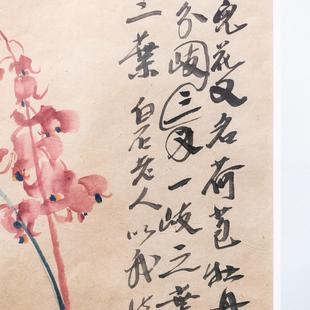 兒花又名荷苞牡丹
分歧三叉一歧之葉
三葉 白石老人以我